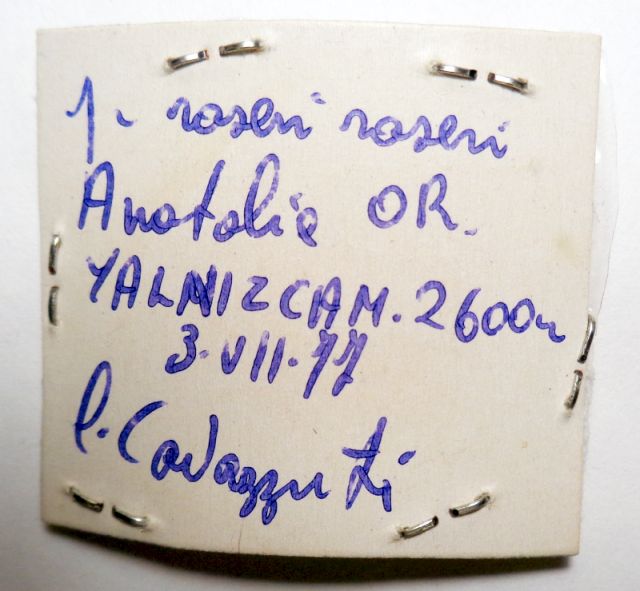 J. roseri roseri
Anatolia OR.
YALNIZCAM. 2600m
3.VII.77
P. Cavazzuti